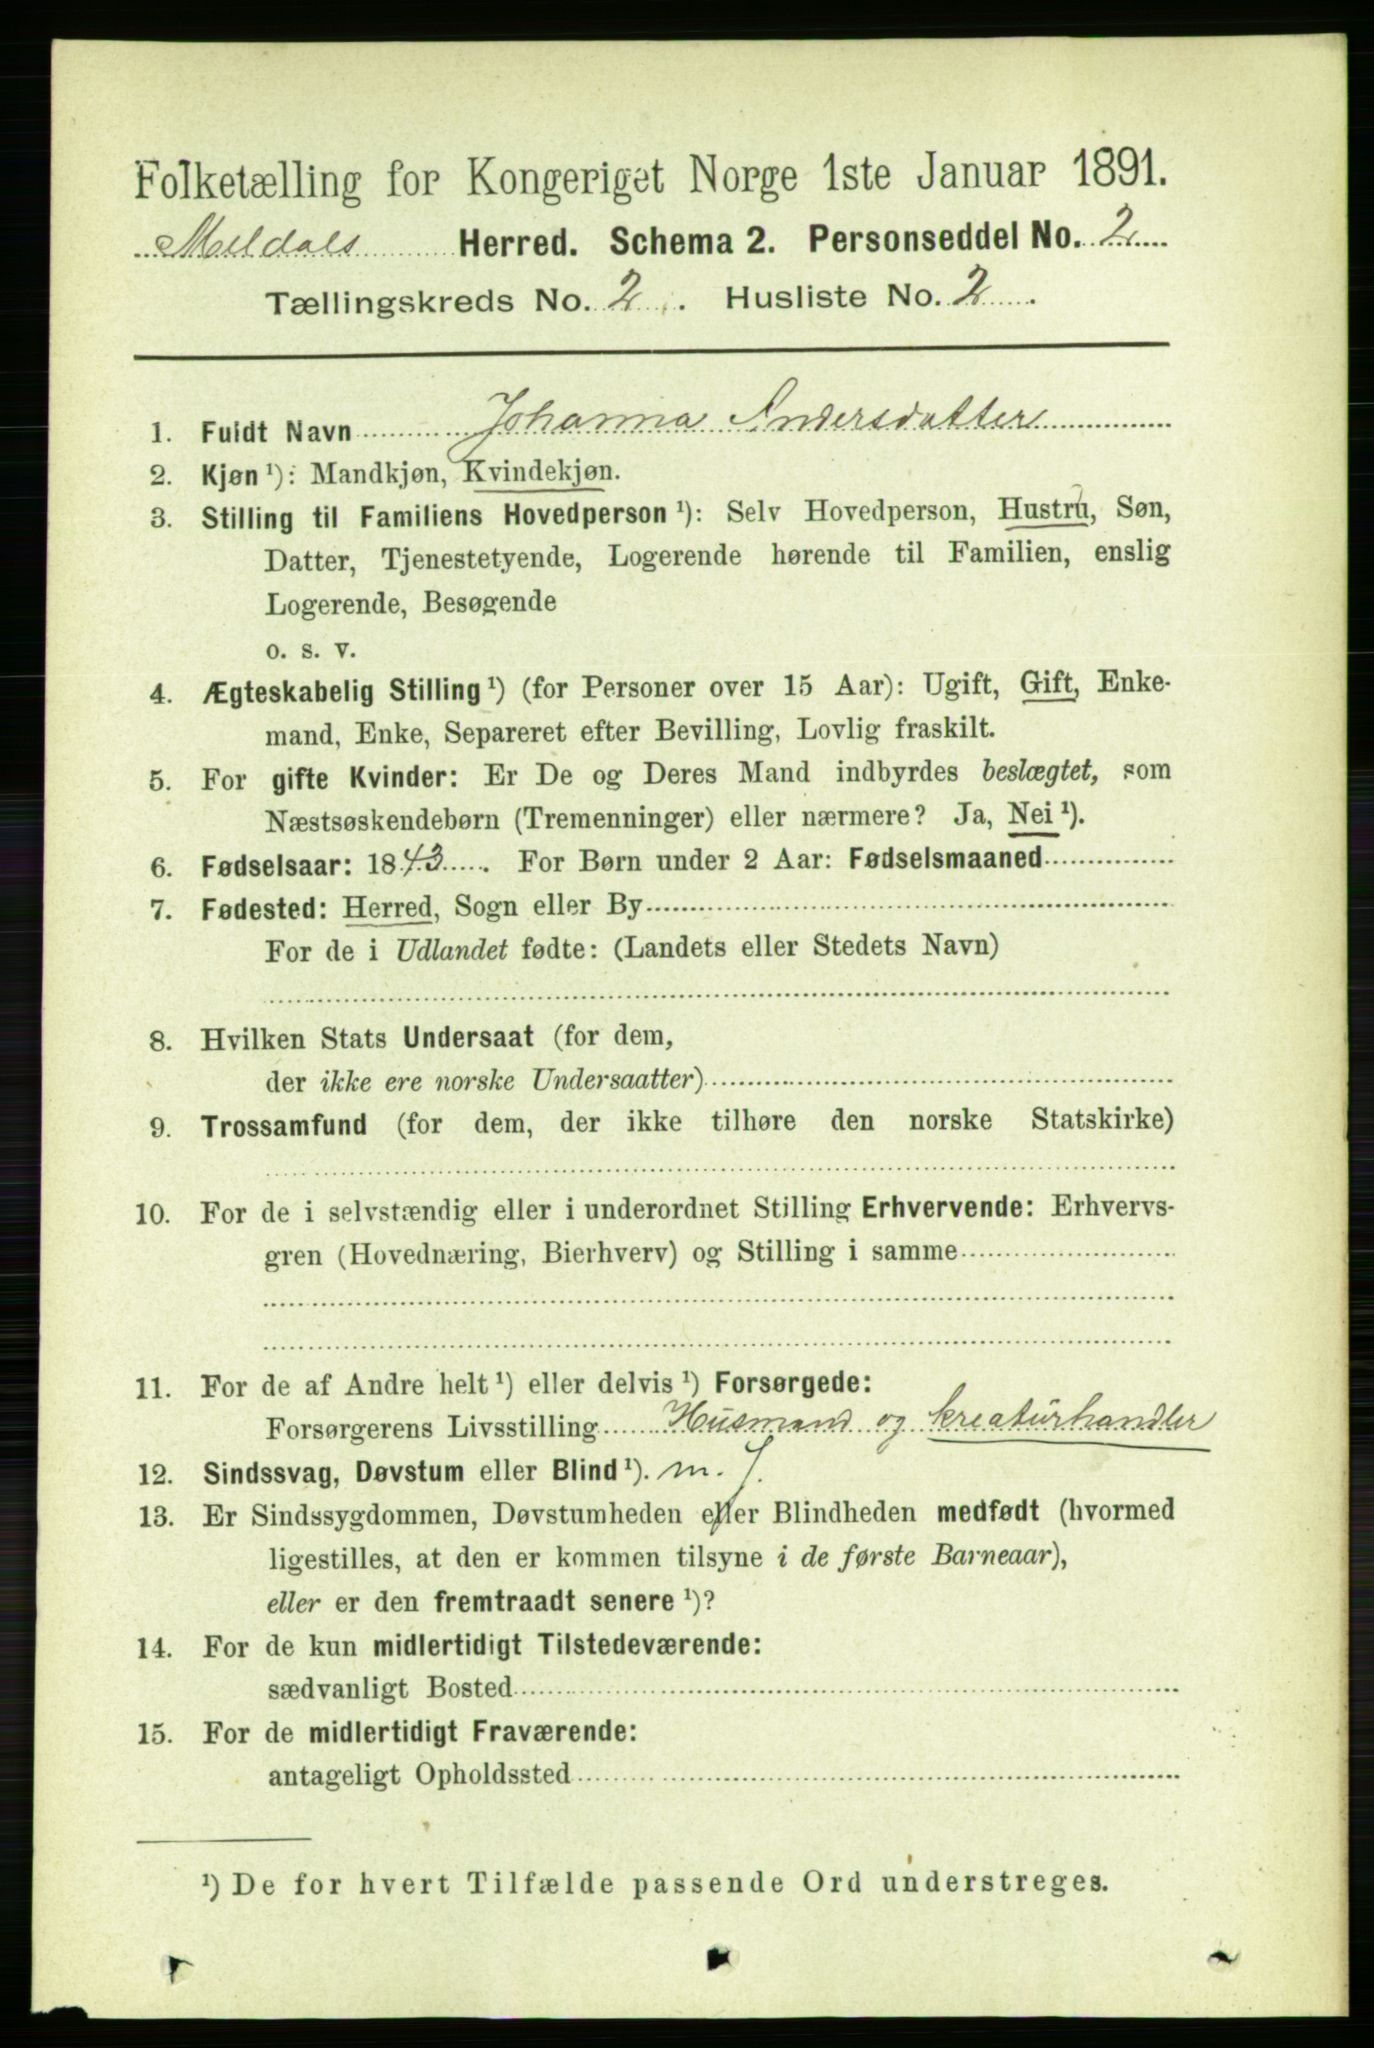 Folketælling for Kongeriget Norge 1ste Januar 1891.
Meldals Herred. Schema 2. Personseddel No. 2
Tællingskreds No. 2. Husliste No. 2.
1. Fuldt Navn Johanna Andersdatter
2. Kjøn ¹): Mandkjøn, Kvindekjøn.
3. Stilling til Familiens Hovedperson ¹): Selv Hovedperson, Hustru, Søn,
Datter, Tjenestetyende, Logerende hørende til Familien, enslig
Logerende, Besøgende
o. s. v.
4. Ægteskabelig Stilling ¹) (for Personer over 15 Aar): Ugift, Gift, Enke-
mand, Enke, Separeret efter Bevilling, Lovlig fraskilt.
5. For gifte Kvinder: Er De og Deres Mand indbyrdes beslægtet, som
Næstsøskendebørn (Tremenninger) eller nærmere? Ja, Nei ¹).
6. Fødselsaar: 1843. For Børn under 2 Aar: Fødselsmaaned
7. Fødested: Herred, Sogn eller By
For de i Udlandet fødte: (Landets eller Stedets Navn)
8. Hvilken Stats Undersaat (for dem,
der ikke ere norske Undersaatter)
9. Trossamfund (for dem, der ikke tilhøre den norske Statskirke)
10. For de i selvstændig eller i underordnet Stilling Erhvervende: Erhvervs-
gren (Hovednæring, Bierhverv) og Stilling i samme
11. For de af Andre helt ¹) eller delvis ¹) Forsørgede:
Forsørgerens Livsstilling Husmand og kreaturhandler
12. Sindssvag, Døvstum eller Blind ¹).
13. Er Sindssygdommen, Døvstumheden eller Blindheden medfødt (hvormed
ligestilles, at den er kommen tilsyne i de første Barneaar),
eller er den fremtraadt senere ¹)?
14. For de kun midlertidigt Tilstedeværende:
sædvanligt Bosted
15. For de midlertidigt Fraværende:
antageligt Opholdssted
¹) De for hvert Tilfælde passende Ord understreges.